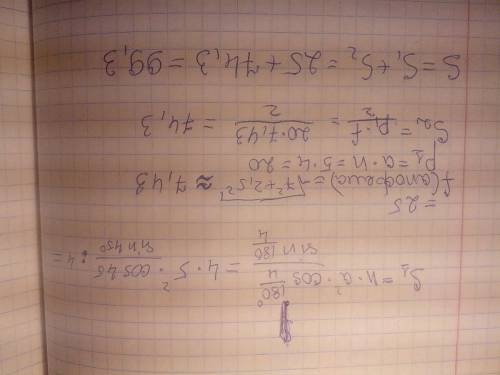 S₁ = n · a² · cos 180°/4 / sin 180/4 = 4 · 5² · cos 45/sin 45° : 4 =
= 25
f(апофема) = √7²+2,5² ≈ 7,43
P₂ = a · n = 5 · 4 = 20
S₂ = P · f/2 = 20 · 7,43/2 = 74,3
S = S₁ + S₂ = 25 + 74,3 = 99,3